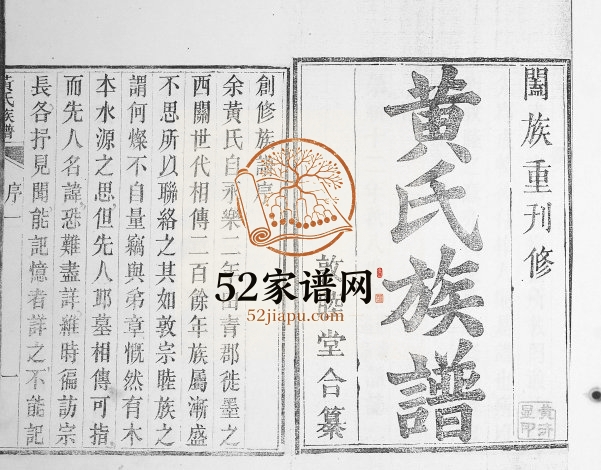 闔族重刊修
黃氏族譜
敦睦堂合纂
創修族譜序
余黃氏自永樂二年由青郡徙墨之
西關世代相傳二百餘年族屬漸盛
不思所以聯絡之其如敦宗睦族之
謂何燦不自量竊與弟章慨然有木
本水源之思但先人邱墓相傳可指
而先人名諱恐難盡詳維時徧訪宗
長各抒見聞能記憶者詳之不能記
黃氏族譜 序一 一
52家谱网
52jiapu.com